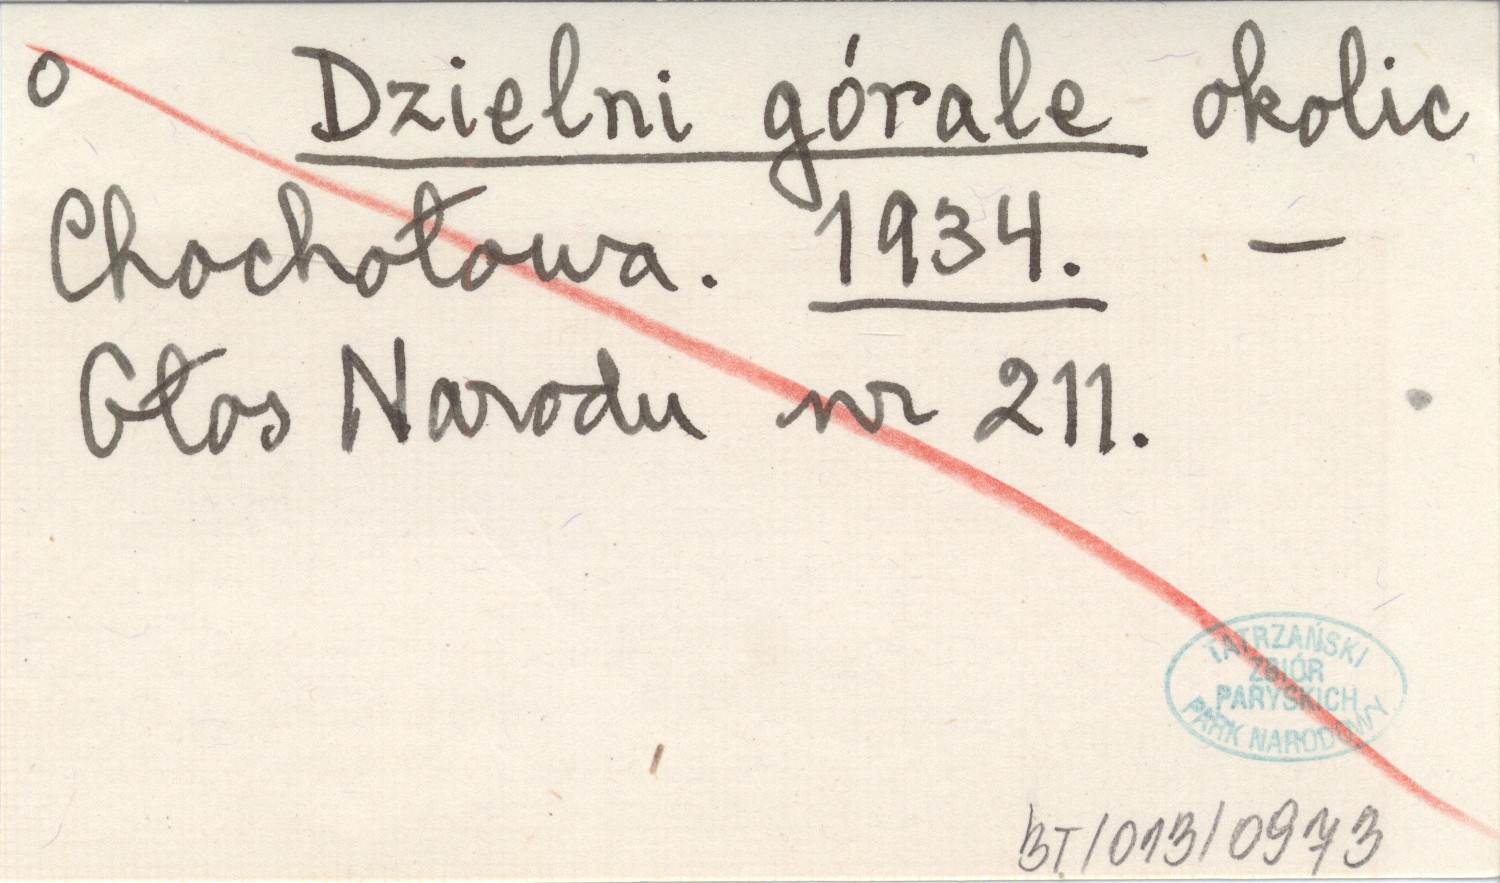 o Dzielni górale okolic
Chochołowa. 1934. —
Głos Narodu nr 211.
TATRZAŃSKI
ZBIÓR
PARYSKICH
PARK NARODOWY
BT/013/0973